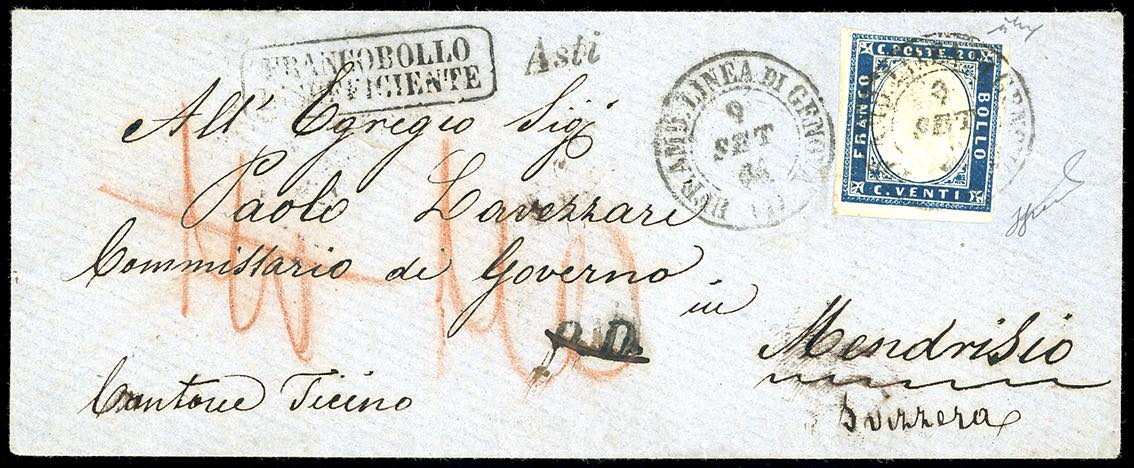 FRANCOBOLLO
INSUFFICIENTE
Asti
AMB. LINEA DI GENOVA
9
SET
(1)
C. POSTE 20
FRANCO
BOLLO
C. VENTI
SET
All' Egregio Sig.
Paolo Lavezzari
Commissario di Governo
in
Mendrisio
Cantone Ticino
Svizzera
P.D.
10